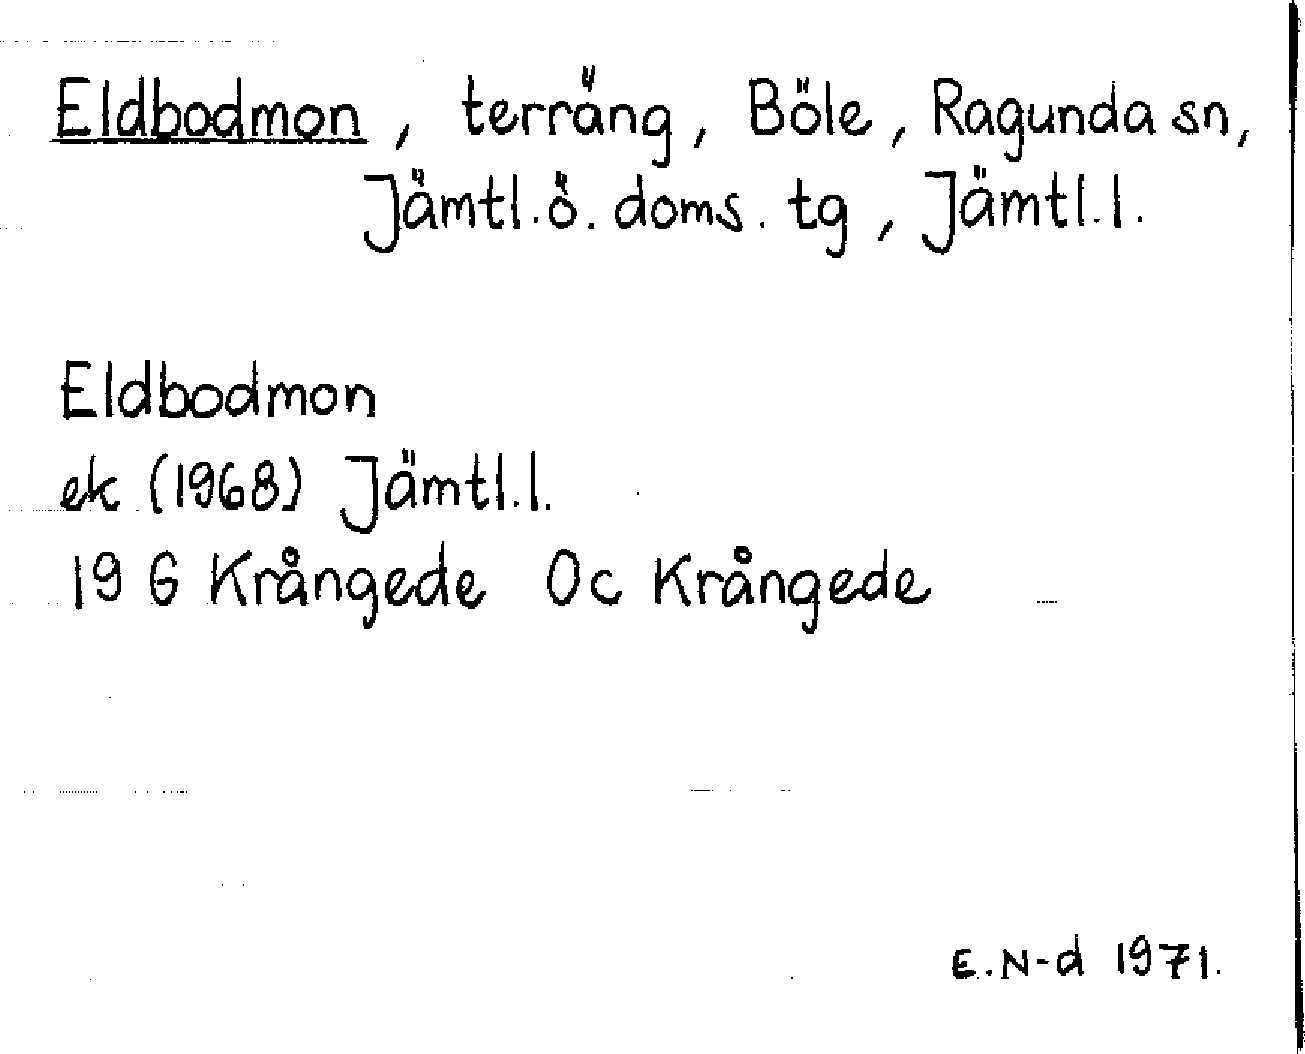 Eldbodmon, terräng, Böle, Ragunda sn,
Jämtl.ö. doms. tg, Jämtl.l.
Eldbodmon
ek (1968) Jämtl.l.
19 G Krångede 0c Krångede
E.N-d 1971.